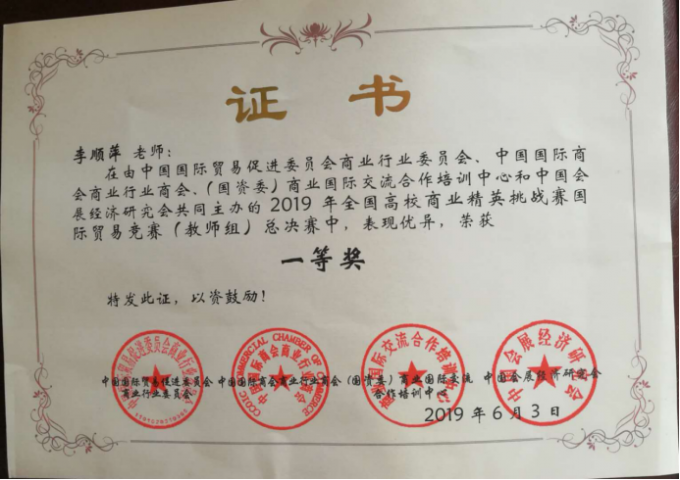 证 书
李顺萍 老师：
在由中国国际贸易促进委员会商业行业委员会、中国国际商
会商业行业商会、（国资委）商业国际交流合作培训中心和中国会
展经济研究会共同主办的 2019 年全国高校商业精英挑战赛国
际贸易竞赛（教师组）总决赛中，表现优异，荣获
一等奖
特发此证，以资鼓励！
中国国际贸易促进委员会 中国国际商会商业行业商会 （国资委）商业国际交流 中国会展经济研究会
商业行业委员会 合作培训中心
2019 年 6 月 3 日